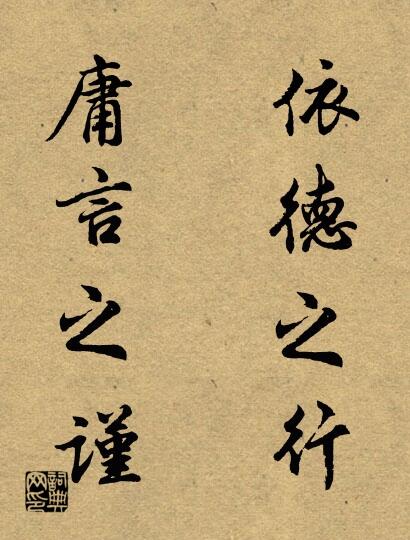 依德之行
庸言之谨
詞典網印